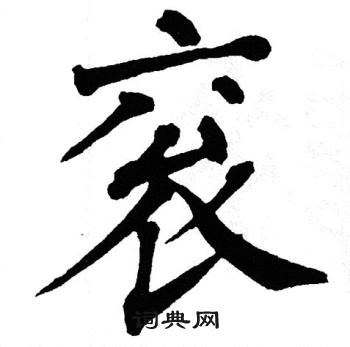 衮
词典网